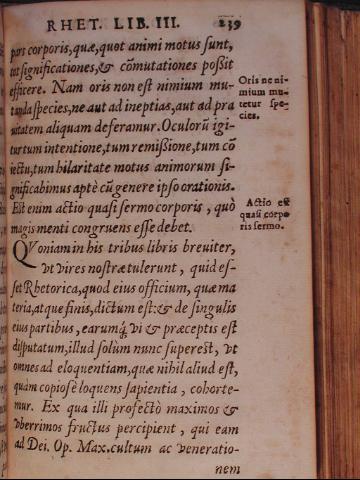 RHET. LIB. III. 239
pars corporis, quæ, quot animi motus sunt,
tot significationes, & cōmutationes possit
efficere. Nam oris non est nimium mu-
tanda species, ne aut ad ineptias, aut ad pra
uitatem aliquam deferamur. Oculorū igi-
tur tum intentione, tum remissione, tum cō
iectu, tum hilaritate motus animorum si-
gnificabimus aptè cū genere ipso orationis.
Est enim actio quasi sermo corporis, quò
magis menti congruens esse debet.
Oris ne ni-
mium mu-
tetur spe-
cies.
Actio est
quasi corpo
ris sermo.
QVoniam in his tribus libris breuiter,
vt vires nostræ tulerunt, quid es-
set Rhetorica, quod eius officium, quæ ma
teria, atque finis, dictum est: & de singulis
eius partibus, earumq́; vi & præceptis est
disputatum, illud solùm nunc superest, vt
omnes ad eloquentiam, quæ nihil aliud est,
quàm copiosè loquens sapientia, cohorte-
mur. Ex qua illi profectò maximos &
vberrimos fructus percipient, qui eam
ad Dei. Op. Max. cultum ac veneratio-
nem